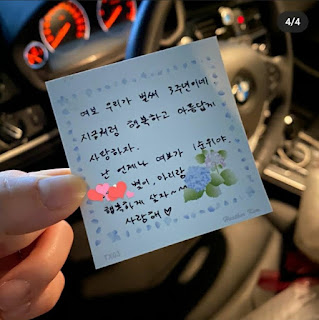 4/4
여보 우리가 벌써 3주년이네
지금처럼 행복하고 아름답게
사랑하자.
난 언제나 여보가 1순위야.
별이, 아리랑
행복하게 살자~~
사랑해♡